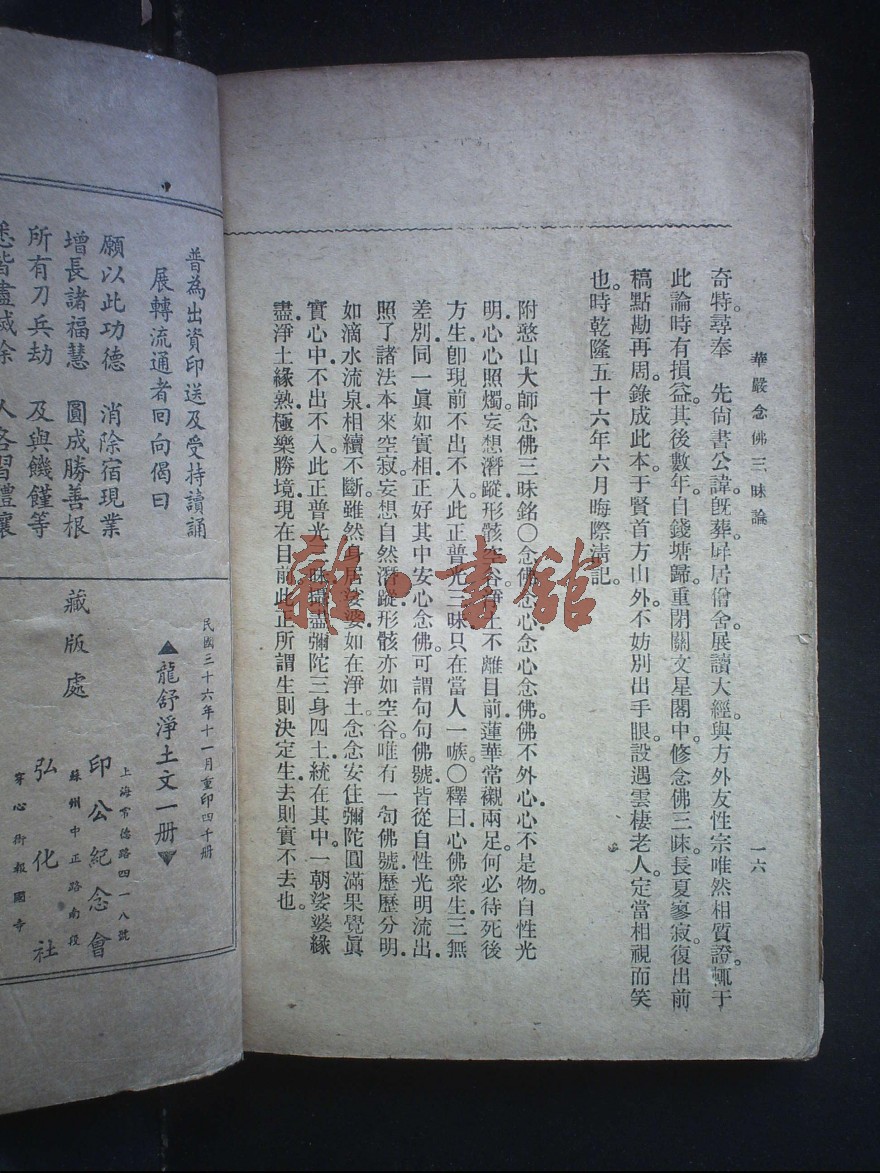 華嚴念佛三昧論
一六
奇特。尋奉　先尚書公諱。旣葬。屛居僧舍。展讀大經。與方外友性宗唯然相質證。輒于
此論時有損益。其後數年。自錢塘歸。重閉關文星閣中。修念佛三昧。長夏寥寂。復出前
稿點勘再周。錄成此本。于賢首方山外。不妨別出手眼。設遇雲棲老人。定當相視而笑
也。時乾隆五十六年六月晦際淸記。
附憨山大師念佛三昧銘〇念佛念心。念心念佛。佛不外心。心不是物。自性光
明。心心照燭。妄想潛蹤。形骸空谷。淨土不離目前。蓮華常襯兩足。何必待死後
方生。卽現前不出不入。此正普光三昧。只在當人一嗾。〇釋曰。心佛衆生。三無
差別。同一眞如實相。正好其中安心念佛。可謂句句佛號。皆從自性光明流出。
照了諸法本來空寂。妄想自然潛蹤。形骸亦如空谷。唯有一句佛號。歷歷分明。
如滴水流泉。相續不斷。雖然身居娑婆。如在淨土。念念安住彌陀圓滿果覺眞
實心中。不出不入。此正普光三昧。攝盡彌陀三身四土。統在其中。一朝娑婆緣
盡。淨土緣熟。極樂勝境。現在目前。此正所謂生則決定生。去則實不去也。
普為出資印送及受持讀誦
展轉流通者回向偈曰
願以此功德　消除宿現業
增長諸福慧　圓成勝善根
所有刀兵劫　及與饑饉等
悉皆盡滅除　人各習禮讓
民國三十六年十一月重印四千册
▲龍舒淨土文一册▼
藏版處
上海常德路四一八號
印公紀念會
蘇州中正路南段
弘化社
穿心街報國寺
雜·書館